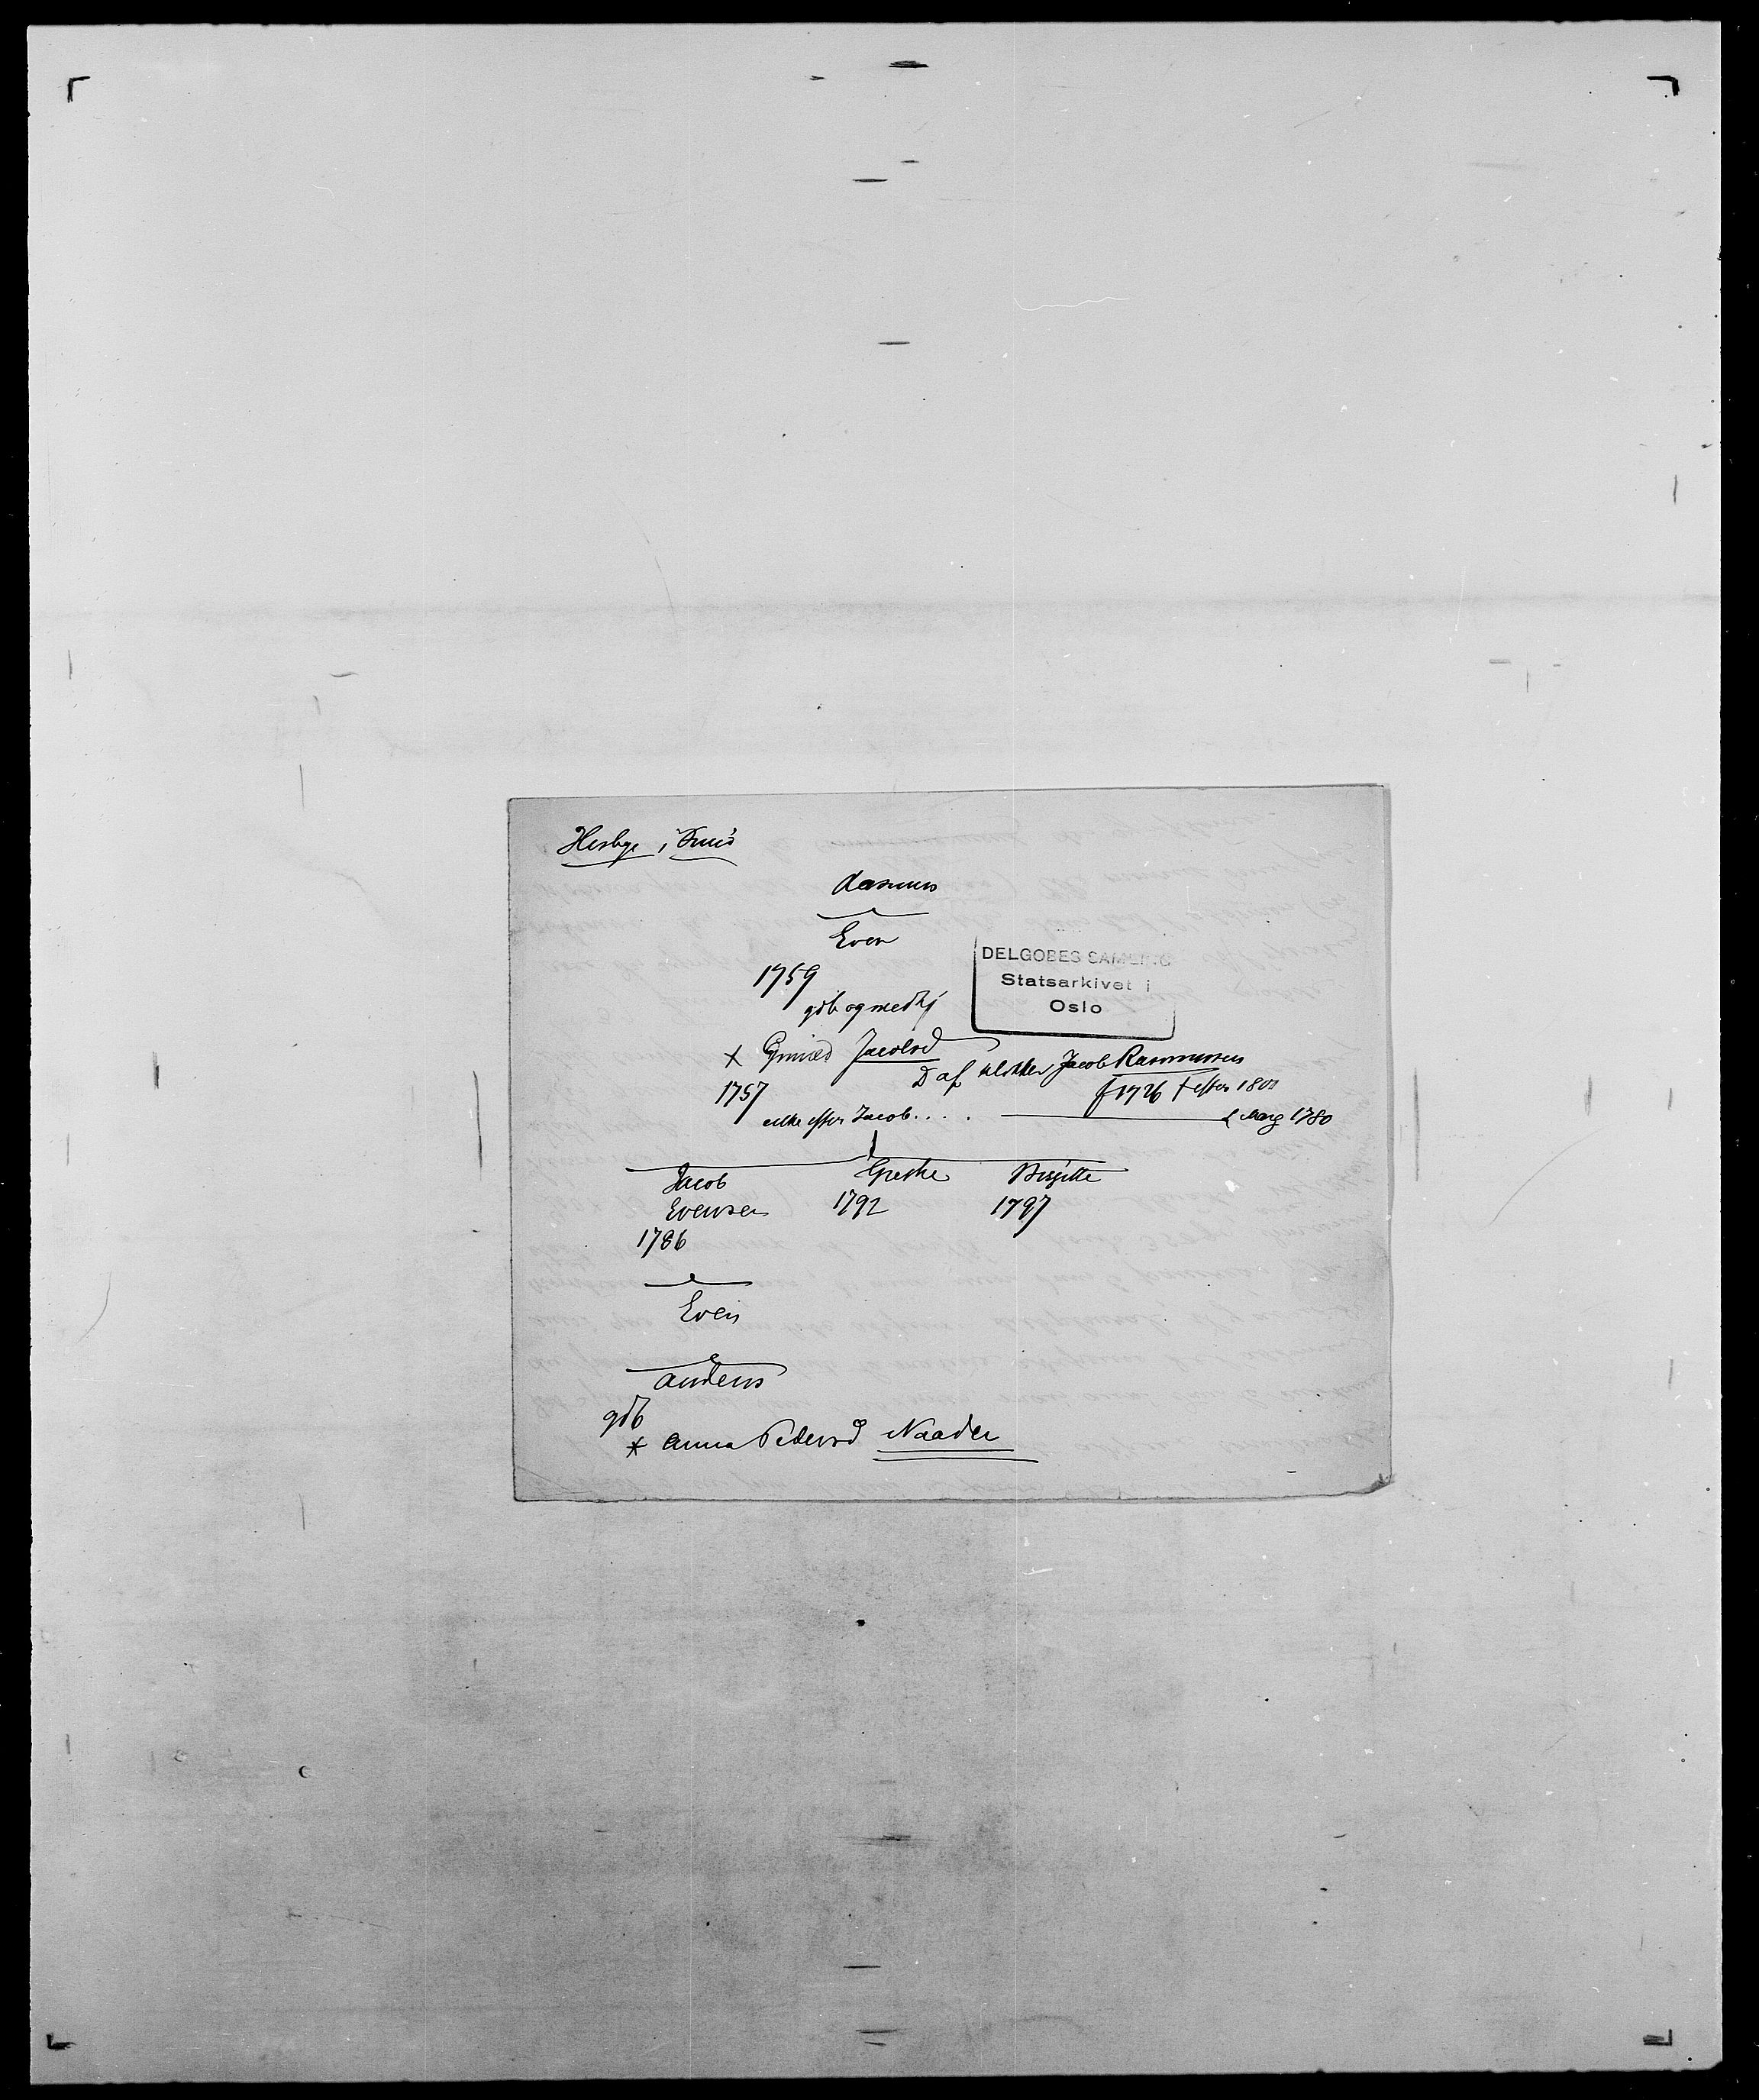 Hesbye, i Snås
Rasmus
Even
1759
gdb og medhj
DELGOBES SAMLING
Statsarkivet i
Oslo
x Gunild Jacobsd
D af klokker Jacob Rasmussen
f 1726 † efter 1801
1757
enke efter Jacob....
1780
Jacob Grethe Birgitte
Evensen 1792 1797
1786
Even
Anders
gdb
x Anna Pedersd Naader